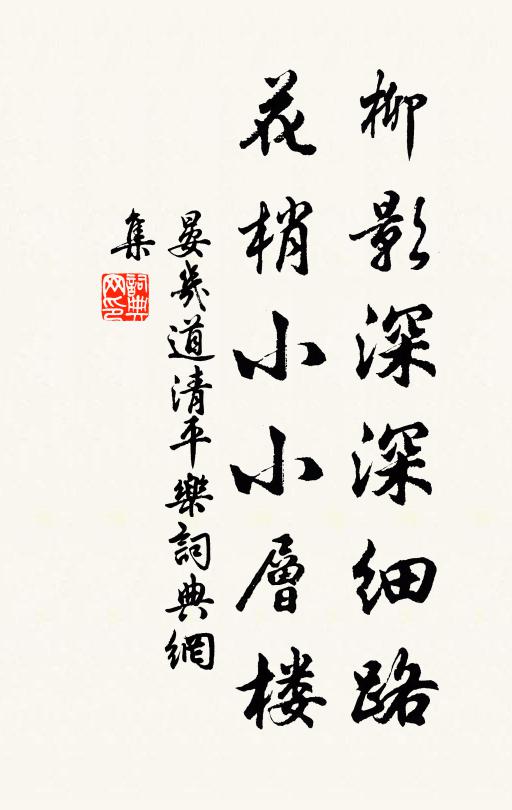 柳影深深細路
花梢小小層楼
晏幾道清平樂詞典網
集
詞典
网印